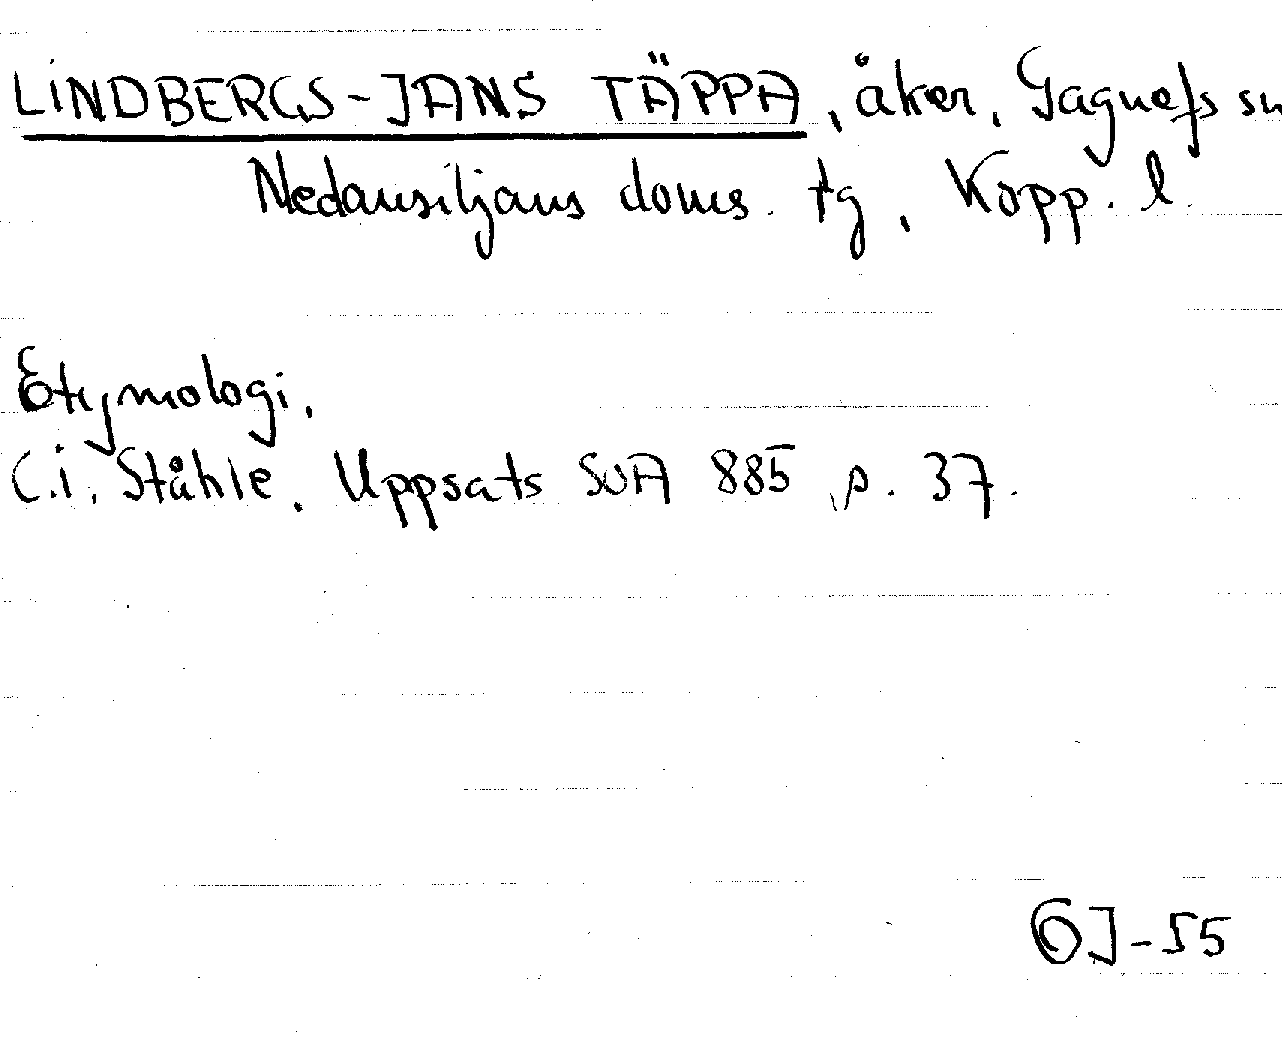 LINDBERGS-JANS TÄPPA, åker, Gagnefs sn
Nedansiljans doms. tg, Kopp. l.
Etymologi.
C.i. Ståhle, Uppsats SOA 885, p. 37.
OJ-55